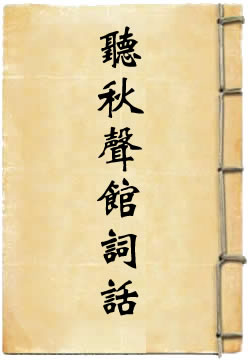 聽秋聲館詞話